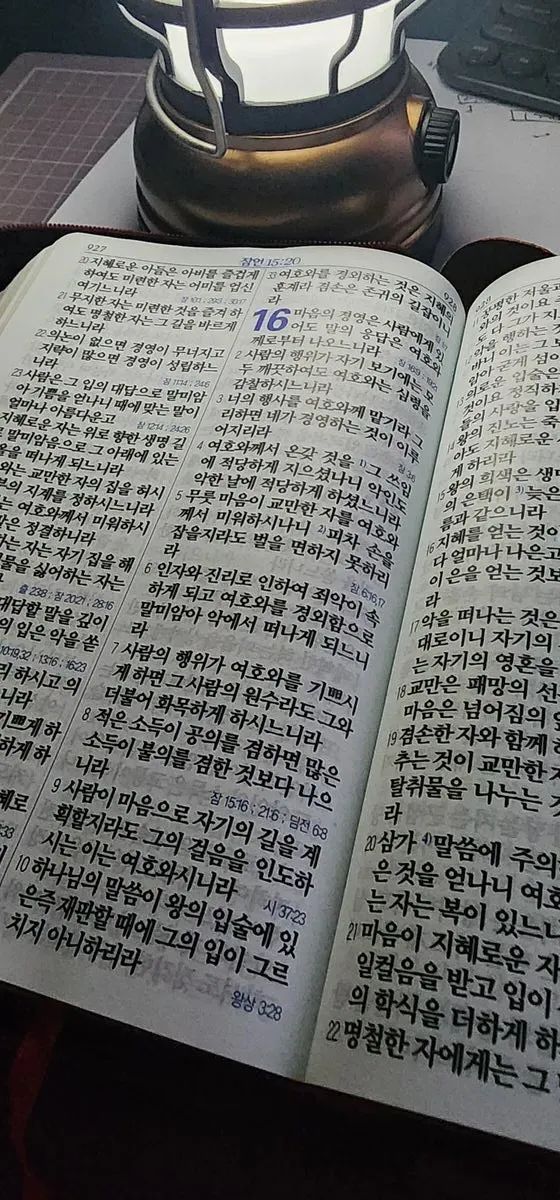 927
잠언 15:20
20 지혜로운 아들은 아비를 즐겁게
하여도 미련한 자는 어미를 업신
여기느니라
잠 10:1 ; 29:3 ; 30:17
21 무지한 자는 미련한 것을 즐겨 하
여도 명철한 자는 그 길을 바르게
하느니라
22 의논이 없으면 경영이 무너지고
지략이 많으면 경영이 성립하느
니라
잠 11:14 ; 24:6
23 사람은 그 입의 대답으로 말미암
아 기쁨을 얻나니 때에 맞는 말이
얼마나 아름다운고
잠 12:14 ; 24:26
지혜로운 자는 위로 향한 생명 길
로 말미암음으로 그 아래에 있는
을 떠나게 되느니라
와는 교만한 자의 집을 허시
부의 지계를 정하시느니라
는 여호와께서 미워하시
은 정결하니라
하는 자는 자기 집을 해
물을 싫어하는 자는
대답할 말을 깊이
의 입은 악을 쏟
리 하시고 의
니라
기쁘게 하
하게 하
33 여호와를 경외하는 것은 지혜의
훈계라 겸손은 존귀의 길잡이니
라
16 마음의 경영은 사람에게 있
어도 말의 응답은 여호와
께로부터 나오느니라
2 사람의 행위가 자기 보기에는 모
두 깨끗하여도 여호와는 심령을
감찰하시느니라
3 너의 행사를 여호와께 맡기라 그
리하면 네가 경영하는 것이 이루
어지리라
4 여호와께서 온갖 것을 1)그 쓰임
에 적당하게 지으셨나니 악인도
악한 날에 적당하게 하셨느니라
5 무릇 마음이 교만한 자를 여호와
께서 미워하시나니 2)피차 손을
잡을지라도 벌을 면하지 못하리
라
잠 6:16,17
6 인자와 진리로 인하여 죄악이 속
하게 되고 여호와를 경외함으로
말미암아 악에서 떠나게 되느니
라
7 사람의 행위가 여호와를 기쁘시
게 하면 그 사람의 원수라도 그와
더불어 화목하게 하시느니라
8 적은 소득이 공의를 겸하면 많은
소득이 불의를 겸한 것보다 나으
니라
잠 15:16 ; 21:6 ; 딤전 6:8
9 사람이 마음으로 자기의 길을 계
획할지라도 그의 걸음을 인도하
시는 이는 여호와시니라
시 37:23
10 하나님의 말씀이 왕의 입술에 있
은즉 재판할 때에 그의 입이 그르
치지 아니하리라
왕상 3:28
15 왕의 희색은 생
의 은택이 3)늦은
름과 같으니라
16 지혜를 얻는 것이
다 얼마나 나은고
이 은을 얻는 것보
라
17 악을 떠나는 것은
대로이니 자기의
는 자기의 영혼을
18 교만은 패망의 선
마음은 넘어짐의
19 겸손한 자와 함께
추는 것이 교만한
탈취물을 나누는
라
20 삼가 4)말씀에 주의
은 것을 얻나니 여호
는 자는 복이 있느니
21 마음이 지혜로운 자
일컬음을 받고 입이
의 학식을 더하게 하
22 명철한 자에게는 그